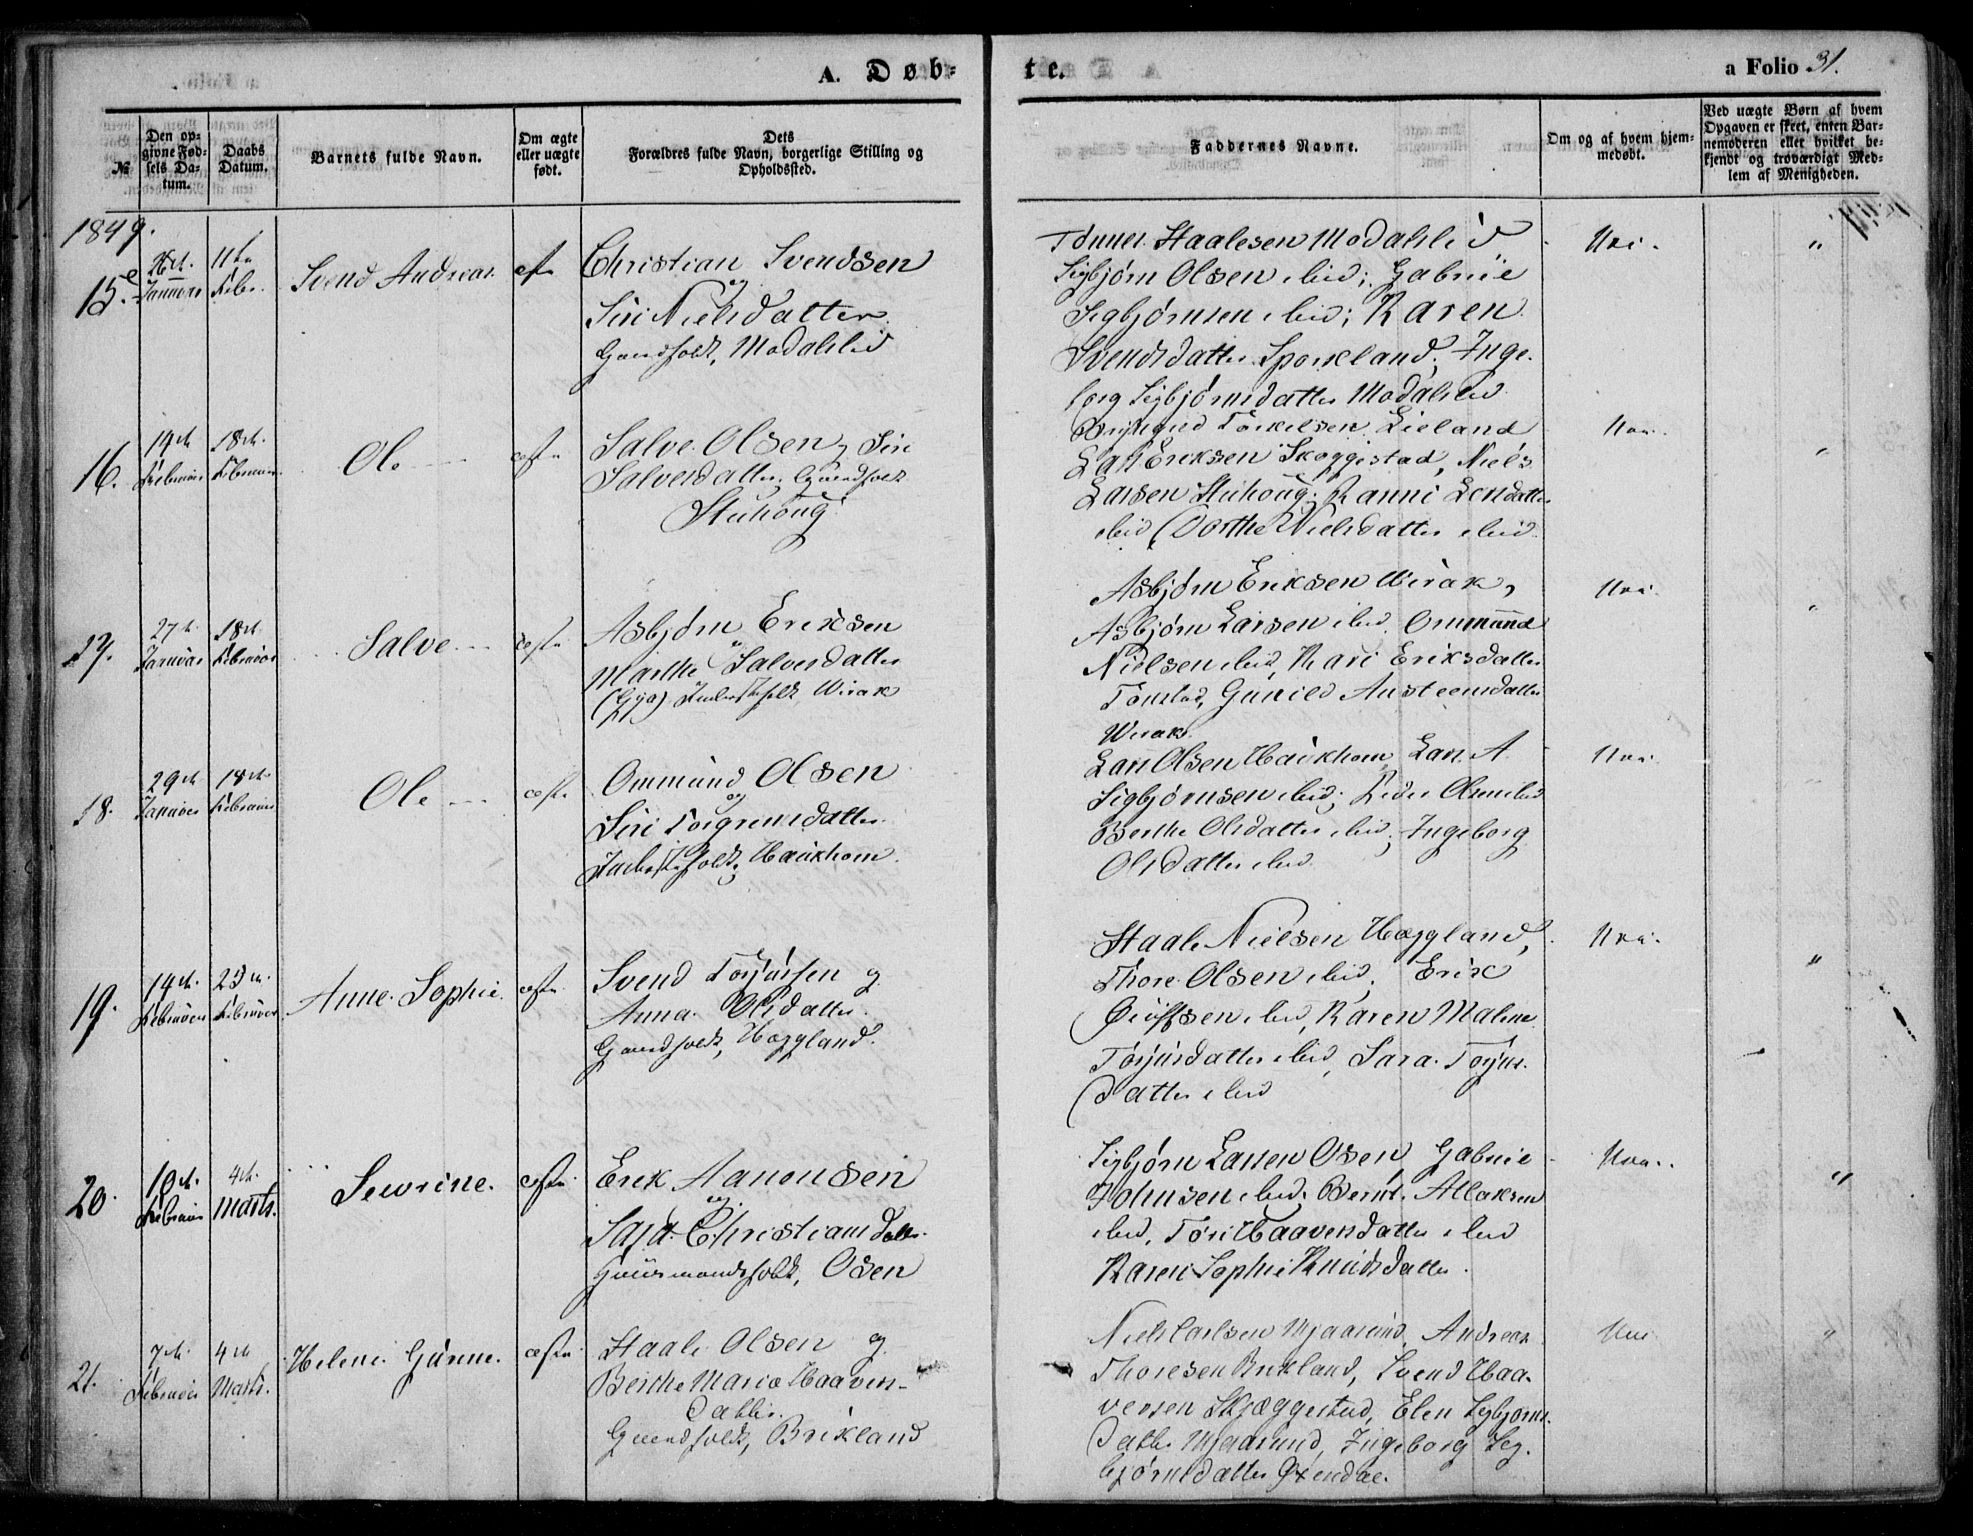 A. Døb-
te.
a Folio 31.
№
Den op-
givne Fød-
sels Da-
tum.
Daabs
Datum.
Barnets fulde Navn.
Om ægte
eller uægte
født.
Dets
Forældres fulde Navn, borgerlige Stilling og
Opholdssted.
Faddernes Navne.
Om og af hvem hjem-
medøbt.
Ved uægte Børn af hvem
Opgaven er skeet, enten Bar-
nemoderen eller hvilket be-
kjendt og troværdigt Med-
lem af Menigheden.
1849.
15.
Svend Andreas
Christian Svendsen
og
Siri Nielsdatter
Modahlid
Tønnes Staalesen Modahlid
Sigbjørn Olsen ibid; Gabriel
Sigbjørnsen ibid; Karen
Svendsdatter Sporkland; Inge-
borg Sigbjørnsdatter Modahlid
"
16.
14de
Februar
18de
Februar
Ole
Salve Olsen, Siri
Salvesdatter
Stuhoug
Torkelsen Lieland
Lars Eriksen Skoggestad, Niels
Larsen Stuhoug; Ranni
ibid Dorthe Nielsdatter ibid
"
17.
27de
Januar
18de
Februar
Salve
Asbjørn Eriksen
Marthe Salvesdatter
Wirak
Asbjørn Eriksen Wirak,
Asbjørn Larsen ibid Ommund
Nielsen ibid, Kari Eriksdatter
Tonstad, Gunild Austeensdatter
Wirak
"
18.
29de
Januar
18de
Februar
Ole
Ommund Olsen
og
Siri Torgrimsdatter
Houkhom
Lars Olsen Houkhom, Lars A
Sigbjørnsen ibid; Peder Olsen ibid
Berthe Olsdatter ibid; Ingeborg
Olsdatter ibid
19.
14de
Februar
25de
Februar
Anne Sophie
Svend Torjussen og
Anna Olsdatter
Gaardfolk, Hæggland
Staale Nielsen Hæggland,
Thore Olsen ibid, Erik
ibid, Karen Malene
Torjusdatter ibid, Sara Torjus-
datter ibid
"
20.
10de
Februar
4de
Marts.
Sewrine.
Erik Aanonsen
og
Christiansdatter
Huusmandsfolk, Osen
Sigbjørn Larsen Osen, Gabriel
Johnsen ibid, Bernt Allaksen
ibid, Tori Haavensdatter ibid
Karen Sophie Knudsdatter
"
21.
7de
Februar
4de
Marts.
Helene Gunne.
Staale Olsen og
Berthe Maria Haavens-
datter.
Gaardfolk, Brikland
Niels Carlsen Mjaasund, Andreas
Thoresen Brikland, Svend Haa-
vensen Skjæggestad, Elen Sigbjørns-
datter Mjaasund, Ingeborg Sig-
bjørnsdatter Øxendal
"